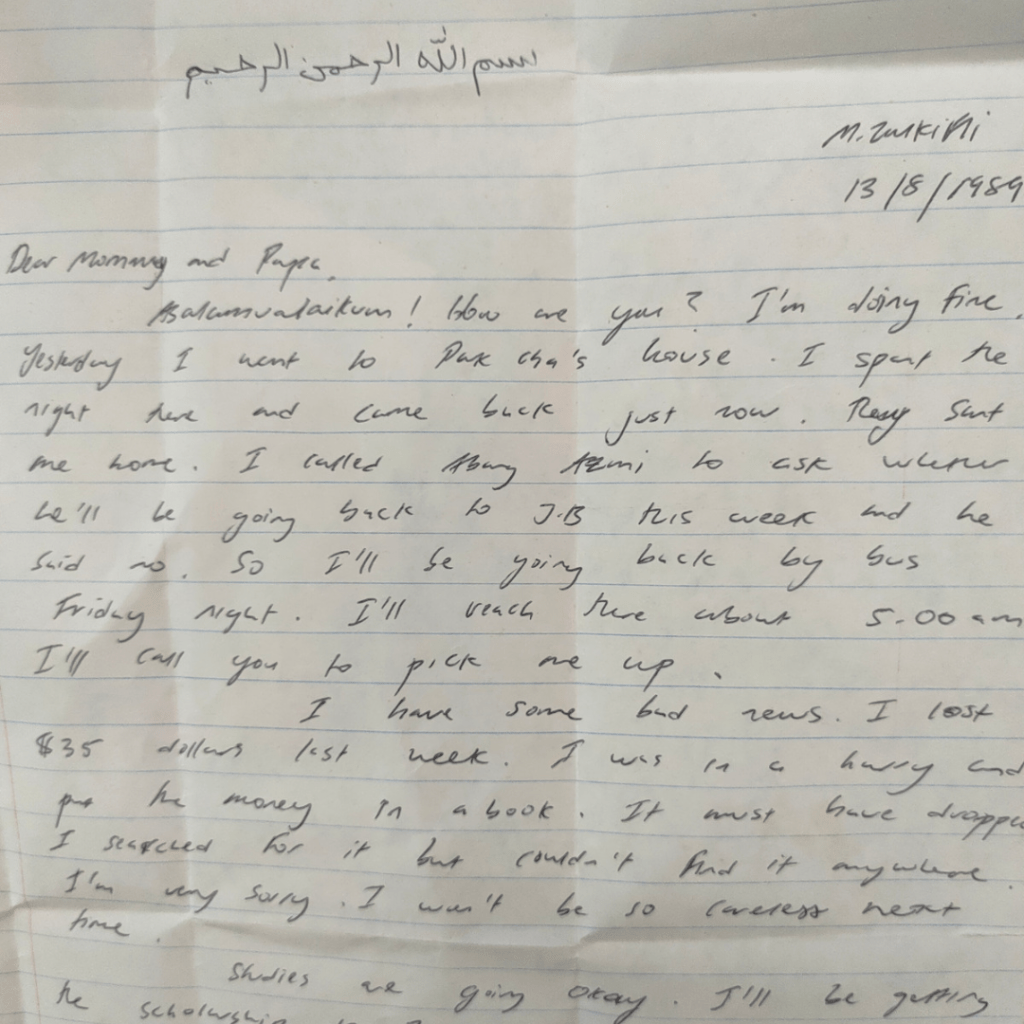 بسم الله الرحمن الرحيم
M. Zulkifli
13/8/1989
Dear Mommy and Papa,
Assalamualaikum! How are you? I'm doing fine.
Yesterday I went to Pak Cha's house. I spent the
night there and came back just now. sent
me home. I called Abang Azmi to ask whether
he'll be going back to J.B this week and he
said no. So I'll be going back by bus
Friday night. I'll reach there about 5.00 am
I'll call you to pick me up.
I have some bad news. I lost
$35 dollars last week. I was in a hurry and
put the money in a book. It must have droppe
I searched for it but couldn't find it anywhere.
I'm very sorry. I won't be so careless next
time.
Studies are going okay. I'll be getting
the scholarship